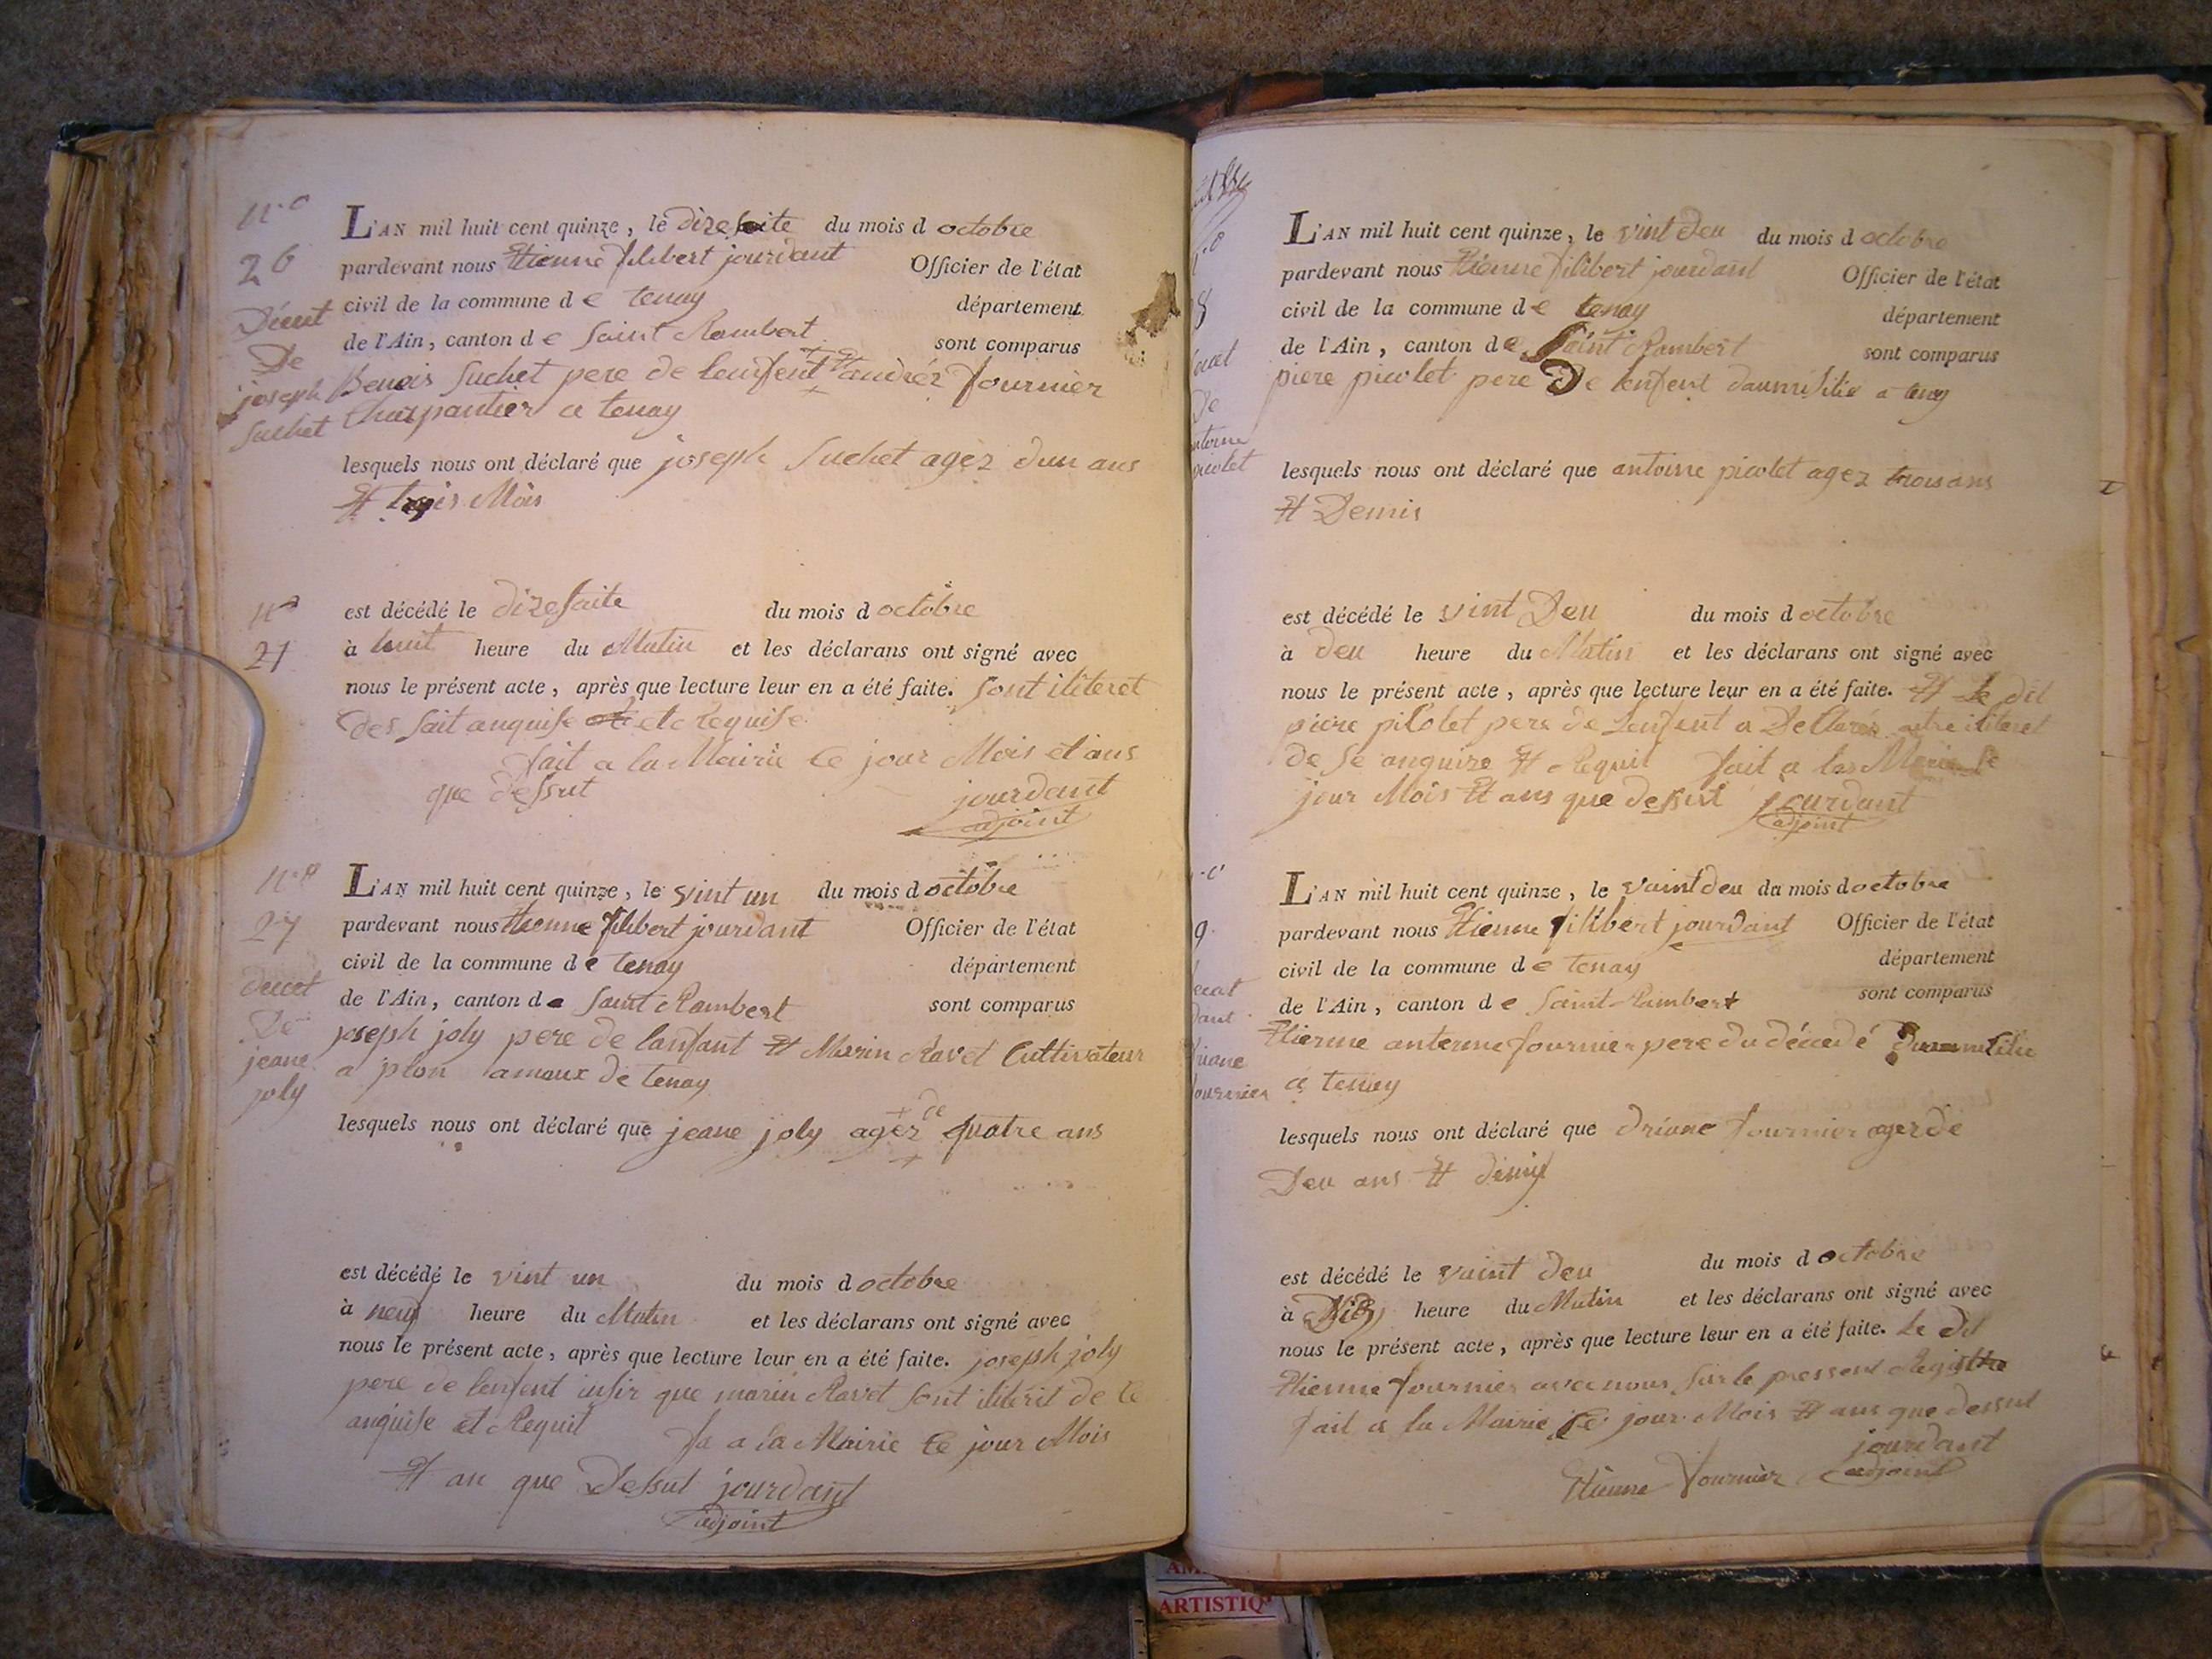 n.o
26
Décet
De
joseph
Suchet
L'AN mil huit cent quinze, le dizesuite du mois d octobre
pardevant nous Etienne filibert jourdant Officier de l'état
civil de la commune d e tenay département
de l'Ain, canton d e Saint Rambert sont comparus
Benois Suchet pere de lenfent Et andréz fournier
Charpantier a tenay
lesquels nous ont déclaré que joseph Suchet agez dun ans
Et trois Mois
n.o
27
est décédé le dizesuite du mois d octobre
à huit heure du Matin et les déclarans ont signé avec
nous le présent acte, après que lecture leur en a été faite. Sont iliteret
des Sait anquise et requise
fait a la Mairie Ce jour Mois et ans
que dessut
jourdant
adjoint
n.o
27
decet
De
jeane
joly
L'AN mil huit cent quinze, le vint un du mois d octobre
pardevant nous Etienne filibert jourdant Officier de l'état
civil de la commune d e tenay département
de l'Ain, canton d e Saint Rambert sont comparus
joseph joly pere de lanfant Et Marin Ravet Cultivateur
a plon amaux de tenay
lesquels nous ont déclaré que jeane joly agez de quatre ans
est décédé le vint un du mois d octobre
à neuf heure du Matin et les déclarans ont signé avec
nous le présent acte, après que lecture leur en a été faite. joseph joly
pere de lenfent insir que marin Ravet Sont iliterit de Ce
anquise et Requit fa a la Mairie Ce jour Mois
Et an que Dessut jourdant
adjoint
8
De
picolet
L'AN mil huit cent quinze, le vint deu du mois d octobre
pardevant nous Etienne filibert jourdant Officier de l'état
civil de la commune d e tenay département
de l'Ain, canton d e Saint Rambert sont comparus
piere picolet pere De lenfent daumisilie a tenay
lesquels nous ont déclaré que antoine picolet agez trois ans
Et Demis
est décédé le vint Deu du mois d octobre
à deu heure du Matin et les déclarans ont signé avec
nous le présent acte, après que lecture leur en a été faite. Et Le dit
piere picolet pere de Lenfent a Declarés estre iliteret
de Se anquire Et Requit fait a la Mairie Ce
jour Mois Et ans que dessut jourdant
adjoint
9
ecet
driane
fournier
L'AN mil huit cent quinze, le vaint deu du mois d octobre
pardevant nous Etienne filibert jourdant Officier de l'état
civil de la commune d e tenay département
de l'Ain, canton d e Saint Rambert sont comparus
Etienne antenne fournier pere du décedé Daumisilie
a tenay
lesquels nous ont déclaré que driane fournier agez de
Deu ans Et dimis
est décédé le vaint deu du mois d octobre
à Dies heure du Matin et les déclarans ont signé avec
nous le présent acte, après que lecture leur en a été faite. Le Dit
Etienne fournier avec nous Sur le pressent Registre
fait a la Mairie Ce jour Mois Et ans que dessut
jourdant
Etienne fournier adjoint
ARTISTIQ